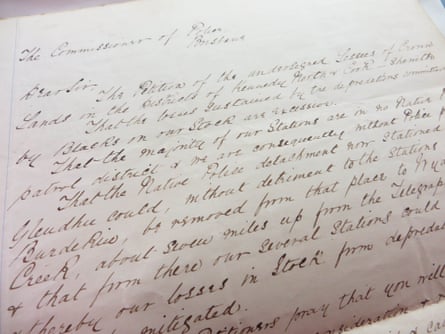 The Commissioner of Police
Brisbane
Dear Sir,
The Petition of the undersigned Lessees of Crown
Lands in the Districts of Kennedy North & Cook Sheweth
That the losses sustained by the depredations committed
by Blacks on our Stock are excessive.
That the majority of our Stations are in no Native P
patrol district & we are consequently without Police p
That the Native Police detachment now stationed
Glendhu could, without detriment to the Stations
Burdekin, be removed from that place to
Creek, about seven miles up from the Telegraph
& that from there our several Stations could
thereby our losses in Stock from depredat
mitigated.
Petitioners pray that you will
consideration &